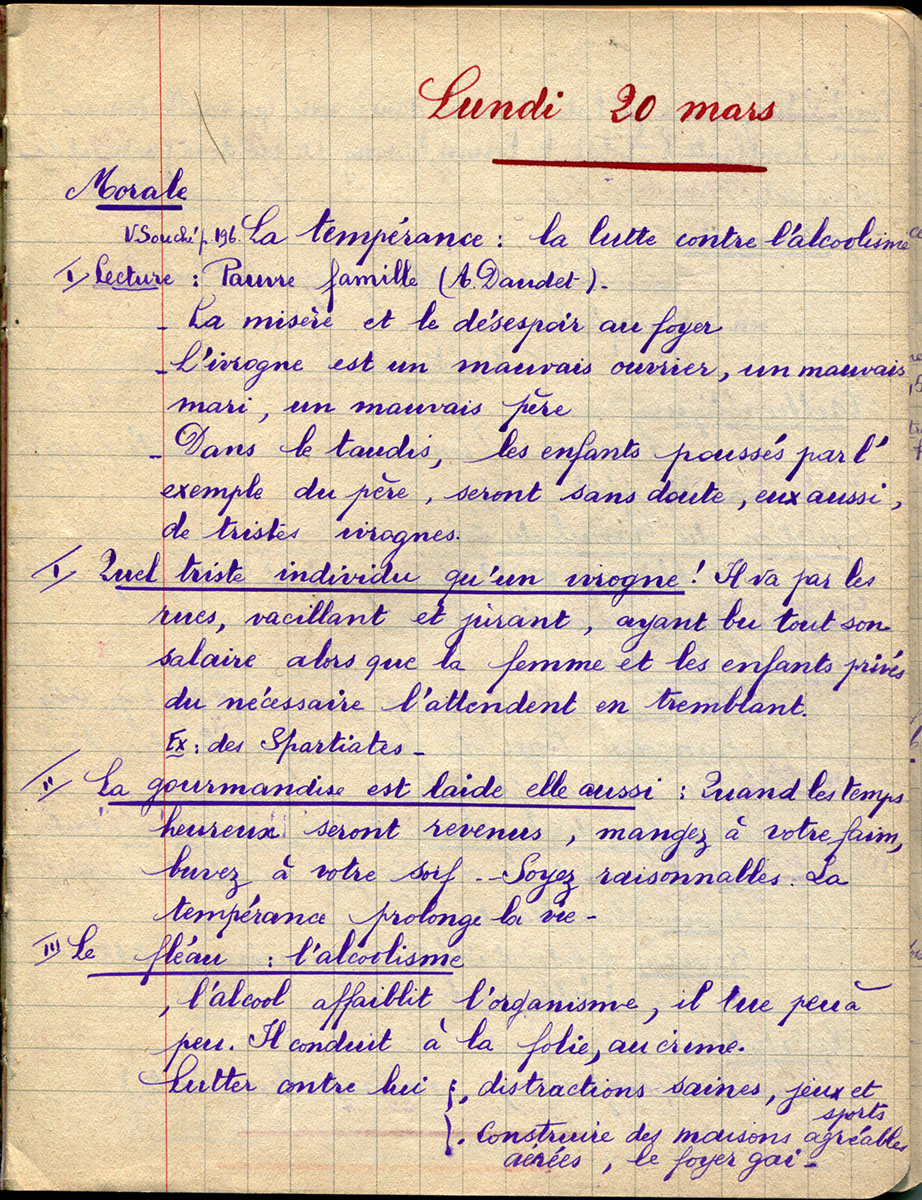 Lundi 20 mars
Morale
V. Souché p. 196. La tempérance : la lutte contre l'alcoolisme
I/ Lecture : Pauvre famille (A. Daudet).
- La misère et le désespoir au foyer
- L'ivrogne est un mauvais ouvrier, un mauvais
mari, un mauvais père
- Dans le taudis, les enfants poussés par l'
exemple du père, seront sans doute, eux aussi,
de tristes ivrognes.
I/ Quel triste individu qu'un ivrogne ! Il va par les
rues, vacillant et jurant, ayant bu tout son
salaire alors que la femme et les enfants privés
du nécessaire l'attendent en tremblant.
Ex : des Spartiates -
II/ La gourmandise est laide elle aussi : Quand les temps
heureux seront revenus, mangez à votre faim,
buvez à votre soif - Soyez raisonnables. La
tempérance prolonge la vie -
III/ Le fléau : l'alcoolisme
, l'alcool affaiblit l'organisme, il tue peu à
peu. Il conduit à la folie, au crime.
Lutter contre lui { . distractions saines, jeux et
sports
. Construire des maisons agréables
aérées, le foyer gai -